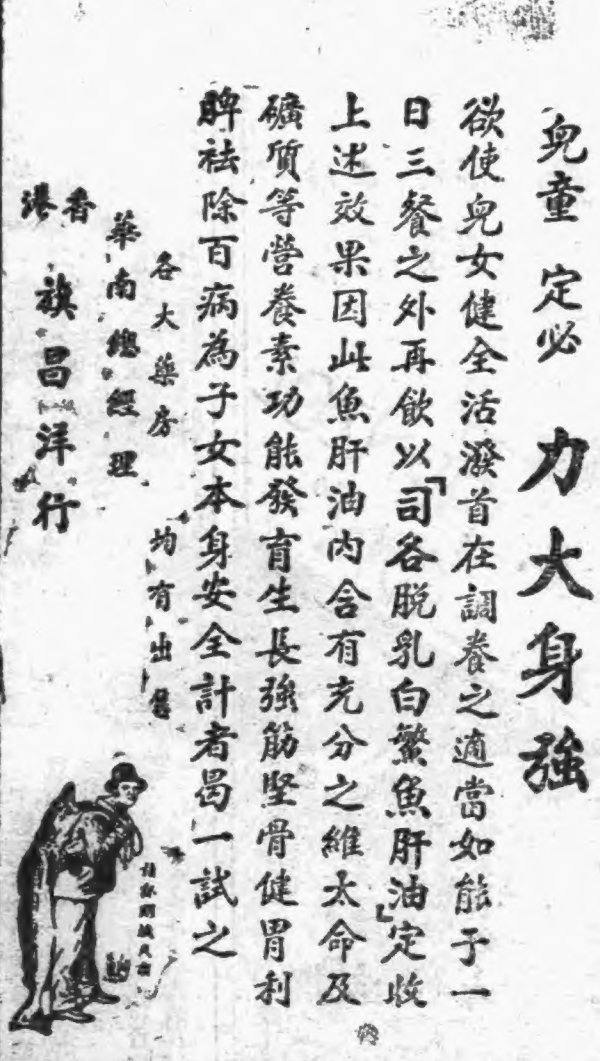 兒童 定必 力大身強
欲使兒女健全活潑首在調養之適當如能于一
日三餐之外再飲以「司各脫乳白鰵魚肝油」定收
上述效果因此魚肝油內含有充分之維太命及
礦質等營養素功能發育生長強筋堅骨健胃利
脾祛除百病為子女本身安全計者曷一試之
各大藥房 均有出售
華南總經理
香港
旗昌洋行